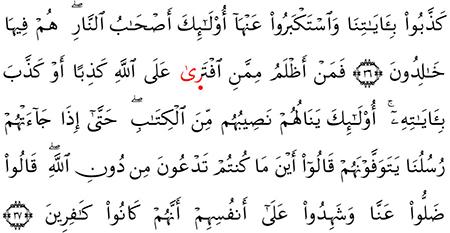 كَذَّبُوا۟ بِـَٔايَـٰتِنَا وَٱسْتَكْبَرُوا۟ عَنْهَآ أُو۟لَـٰٓئِكَ أَصْحَـٰبُ ٱلنَّارِ ۖ هُمْ فِيهَا
خَـٰلِدُونَ ﴿٣٦﴾ فَمَنْ أَظْلَمُ مِمَّنِ ٱفْتَرىٰ عَلَى ٱللَّهِ كَذِبًا أَوْ كَذَّبَ
بِـَٔايَـٰتِهِۦٓ ۚ أُو۟لَـٰٓئِكَ يَنَالُهُمْ نَصِيبُهُم مِّنَ ٱلْكِتَـٰبِ ۖ حَتَّىٰٓ إِذَا جَآءَتْهُمْ
رُسُلُنَا يَتَوَفَّوْنَهُمْ قَالُوٓا۟ أَيْنَ مَا كُنتُمْ تَدْعُونَ مِن دُونِ ٱللَّهِ ۖ قَالُوا۟
ضَلُّوا۟ عَنَّا وَشَهِدُوا۟ عَلَىٰٓ أَنفُسِهِمْ أَنَّهُمْ كَانُوا۟ كَـٰفِرِينَ ﴿٣٧﴾